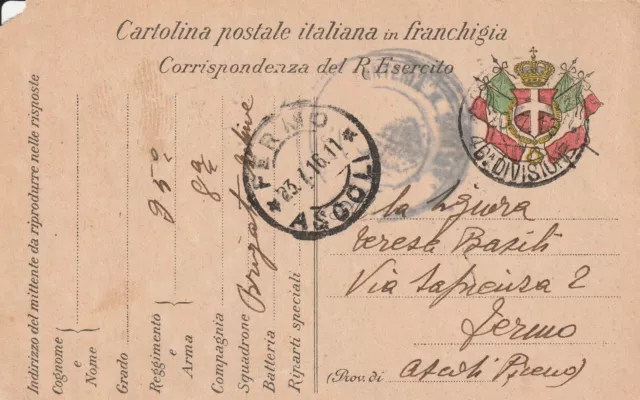 Cartolina postale italiana in franchigia
Corrispondenza del R. Esercito
46ª DIVISIONE
FERMO
23.1.16.11
ASCOLI
Indirizzo del mittente da riprodurre nelle risposte
Cognome e Nome
Grado
Reggimento e Arma 93º
Compagnia 8ª
Squadrone Brigata
Batteria
Riparti speciali
La Signora
Teresa Basili
Via Sapienza 2
Fermo
(Prov. di Ascoli Piceno)